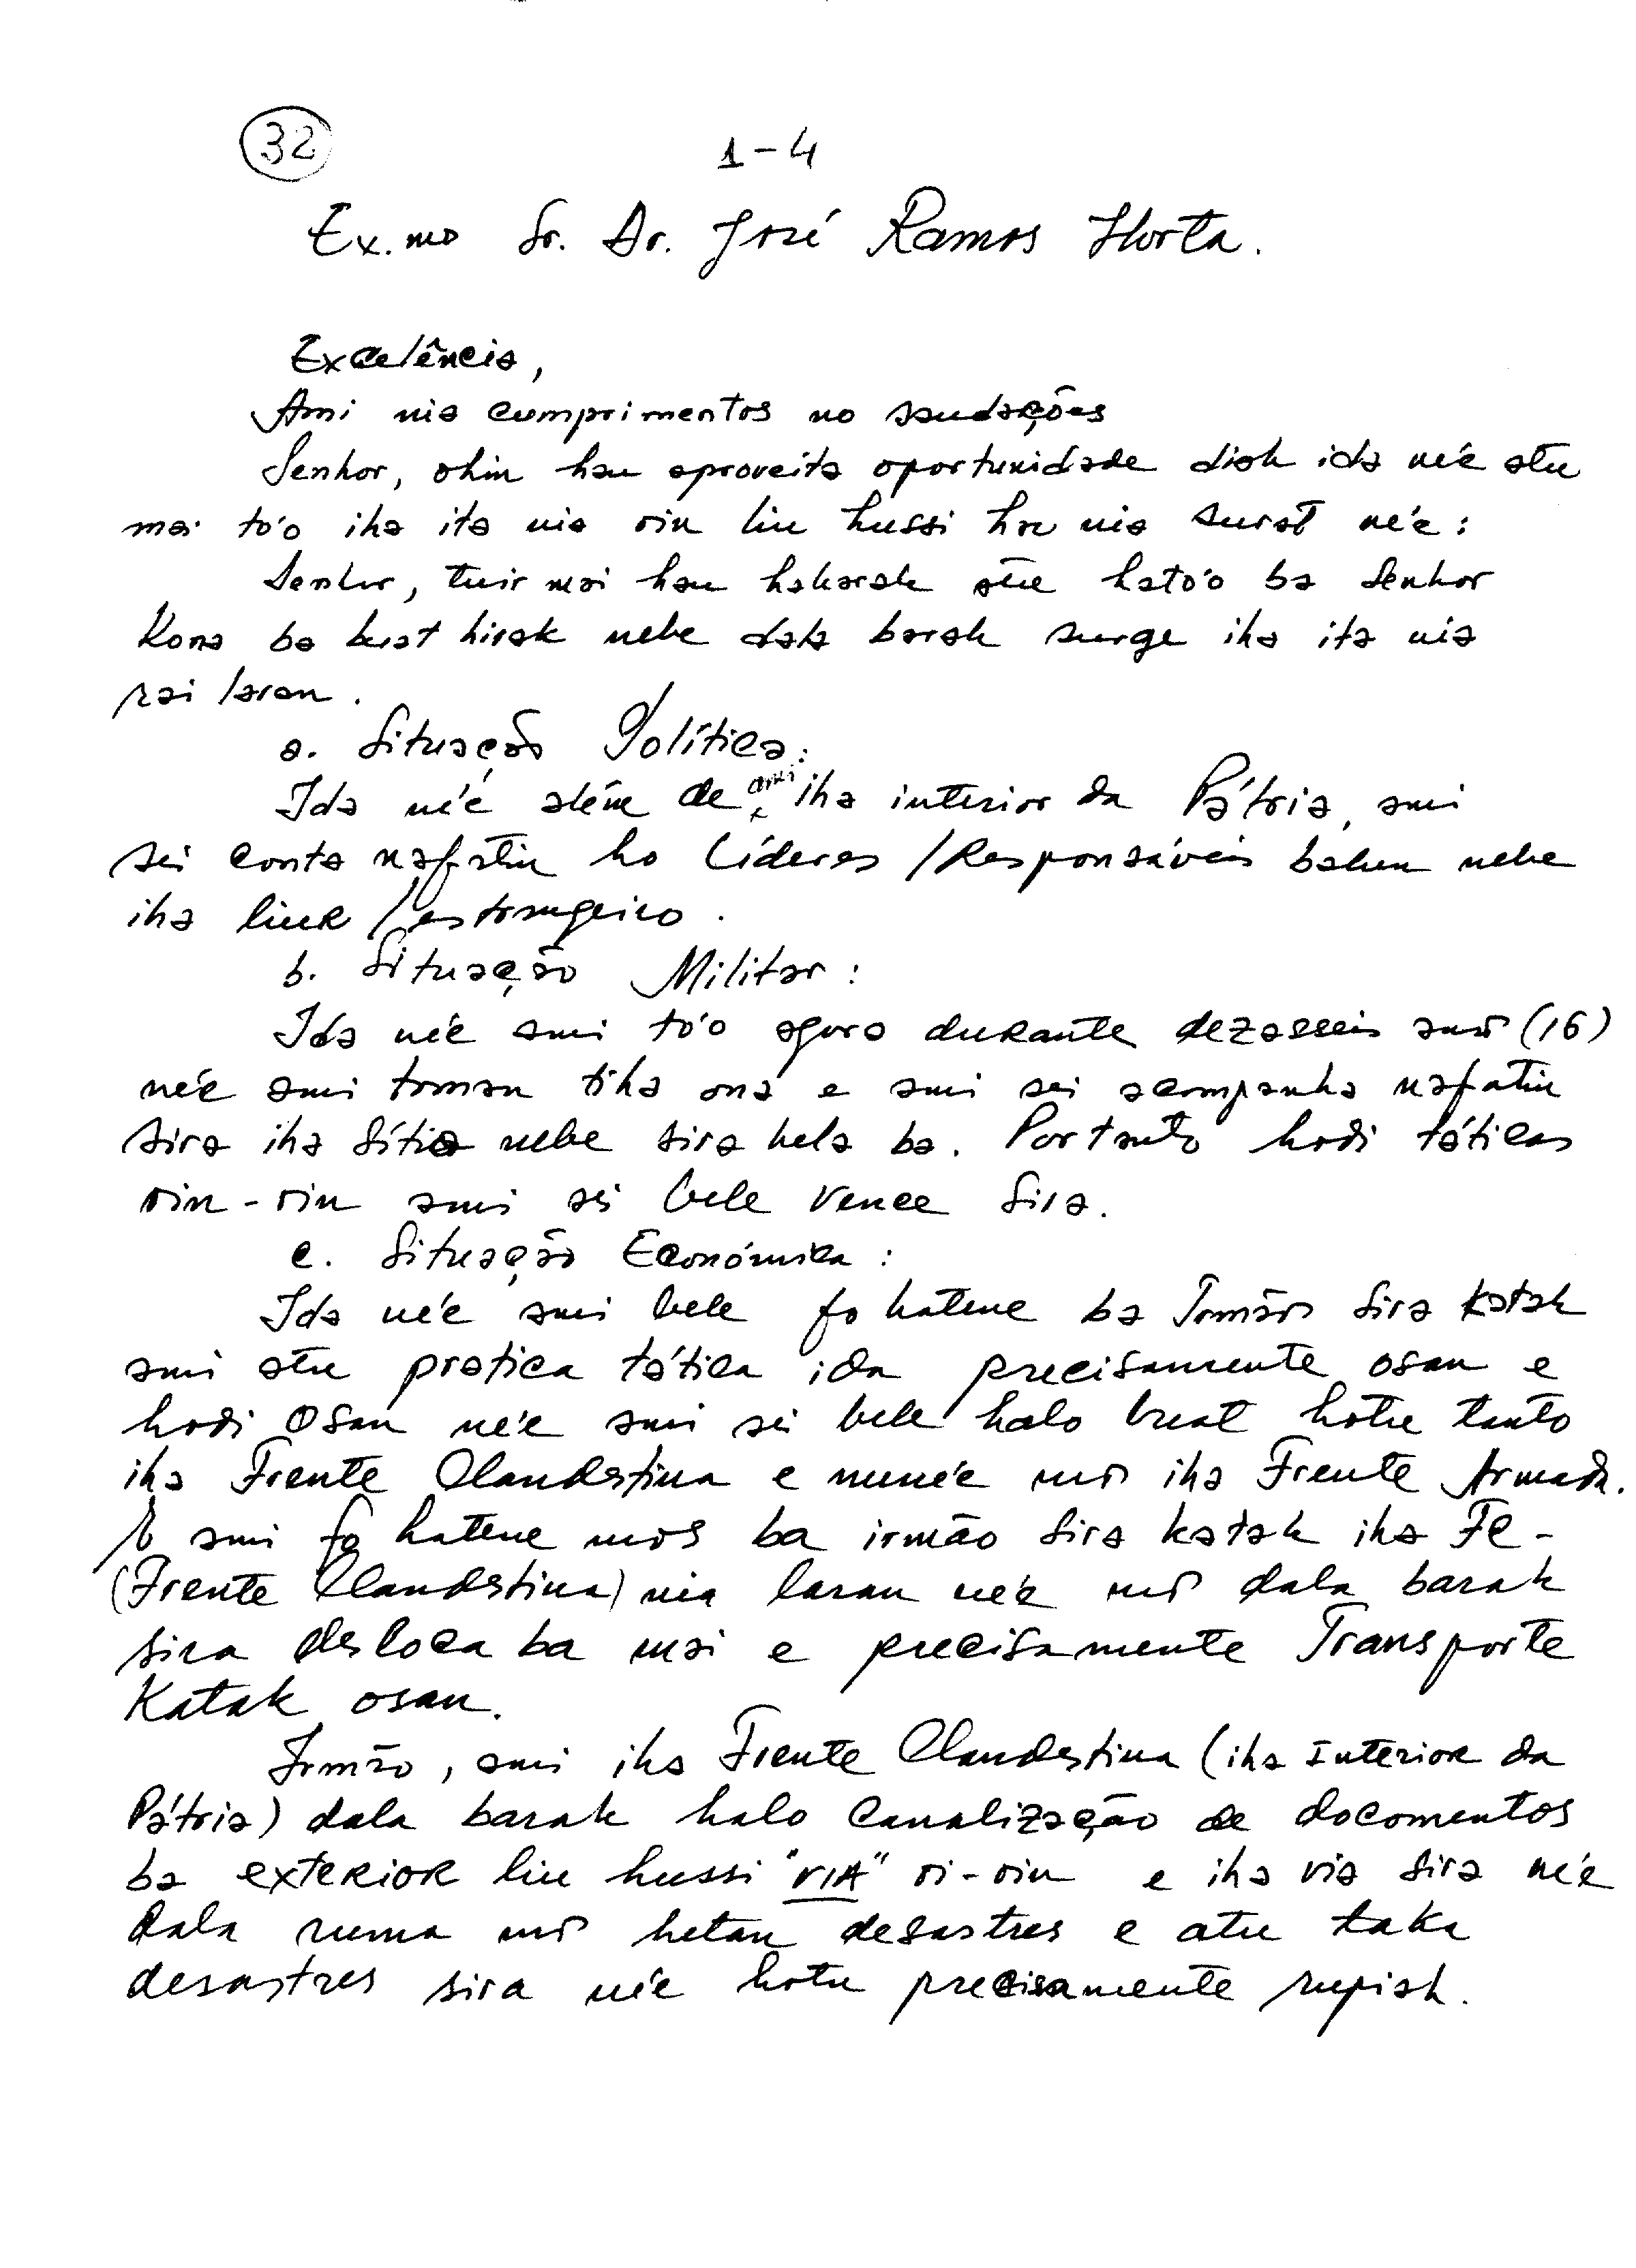 32
1-4
Ex.mo Sr. Dr. José Ramos Horta.
Excelência,
Ami nia cumprimentos no saudações
Senhor, ohin hau aproveita oportunidade diok ida né'e atu
mai to'o iha ita nia oin liu hussi hau nia surat né'e:
Senhor, tuir mai hau hakarak atu hato'o ba Senhor
Kona ba buat hirak nebe dala barak surge iha ita nia
rai laran.
a. Situação Política:
Ida né'e além de ami iha interior da Pátria, ami
sei conta nafatin ho Líderes/Responsáveis balun nebe
iha liur/estrangeiro.
b. Situação Militar:
Ida né'e ami to'o agora durante dezasseis anos (16)
né'e ami toman tiha ona e ami sei acompanha nafatin
sira iha sítio nebe sira hela ba. Portanto hodi táticas
oin-oin ami sei bele vence sira.
c. Situação Económica:
Ida né'e ami bele fo hatene ba Irmãos sira katak
ami atu pratica tática ida precisamente osan e
hodi osan né'e ami sei bele halo buat hotu tanto
iha Frente Clandestina e nuné'e mos iha Frente Armada.
E ami fo hatene mos ba irmão sira katak iha FC-
(Frente Clandestina) nia laran né'e mos dala barak
sira desloca ba mai e precisamente Transporte
Katak osan.
Irmão, ami iha Frente Clandestina (iha interior da
Pátria) dala barak halo Canalização de documentos
ba exterior liu hussi "VIA" oi-oin e iha via sira né'e
dala ruma mos hetan desastres e atu taka
desastres sira né'e hotu precisamente rupiah.